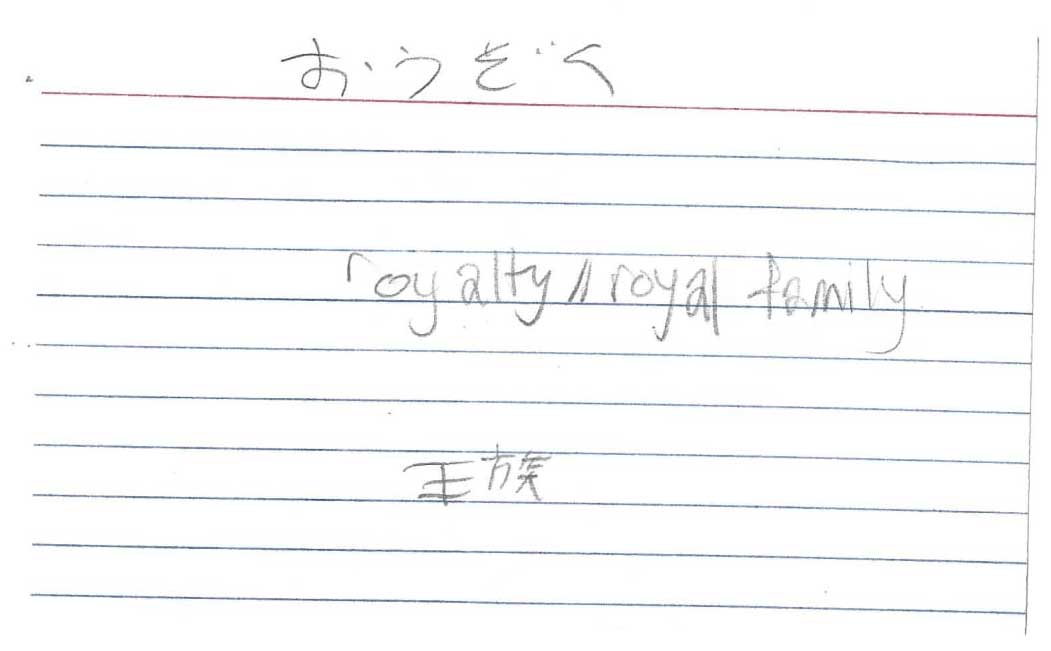 おうぞく
royalty // royal family
王族